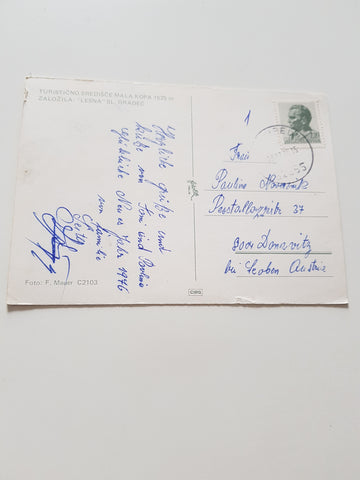 TURISTIČNO SREDIŠČE MALA KOPA 1525 m
ZALOŽILA: "LESNA" SL. GRADEC
Herzliche Grüße und
Küße von Toni und Pavlina
glückliche Neues Jahr 1976
von Familie
Foto: F. Mauer C2103
1
Frau
Pauline
Pestallozzistr 37
8700 Donawitz
bei Leoben Austria